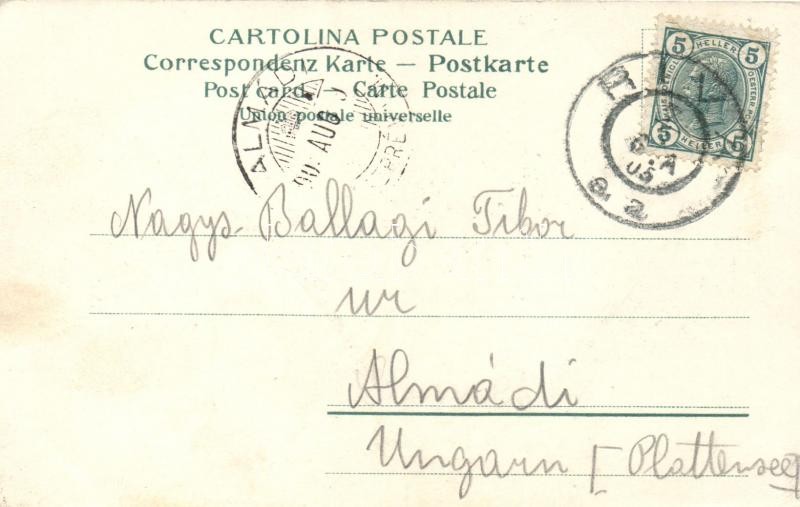 CARTOLINA POSTALE
Correspondenz Karte — Postkarte
Post card — Carte Postale
Union postale universelle
5 HELLER 5
5 HELLER 5
ALMÁD
AUG
05
Nagys. Ballagi Tibor
ur
Almádi
Ungarn [Plattensee]